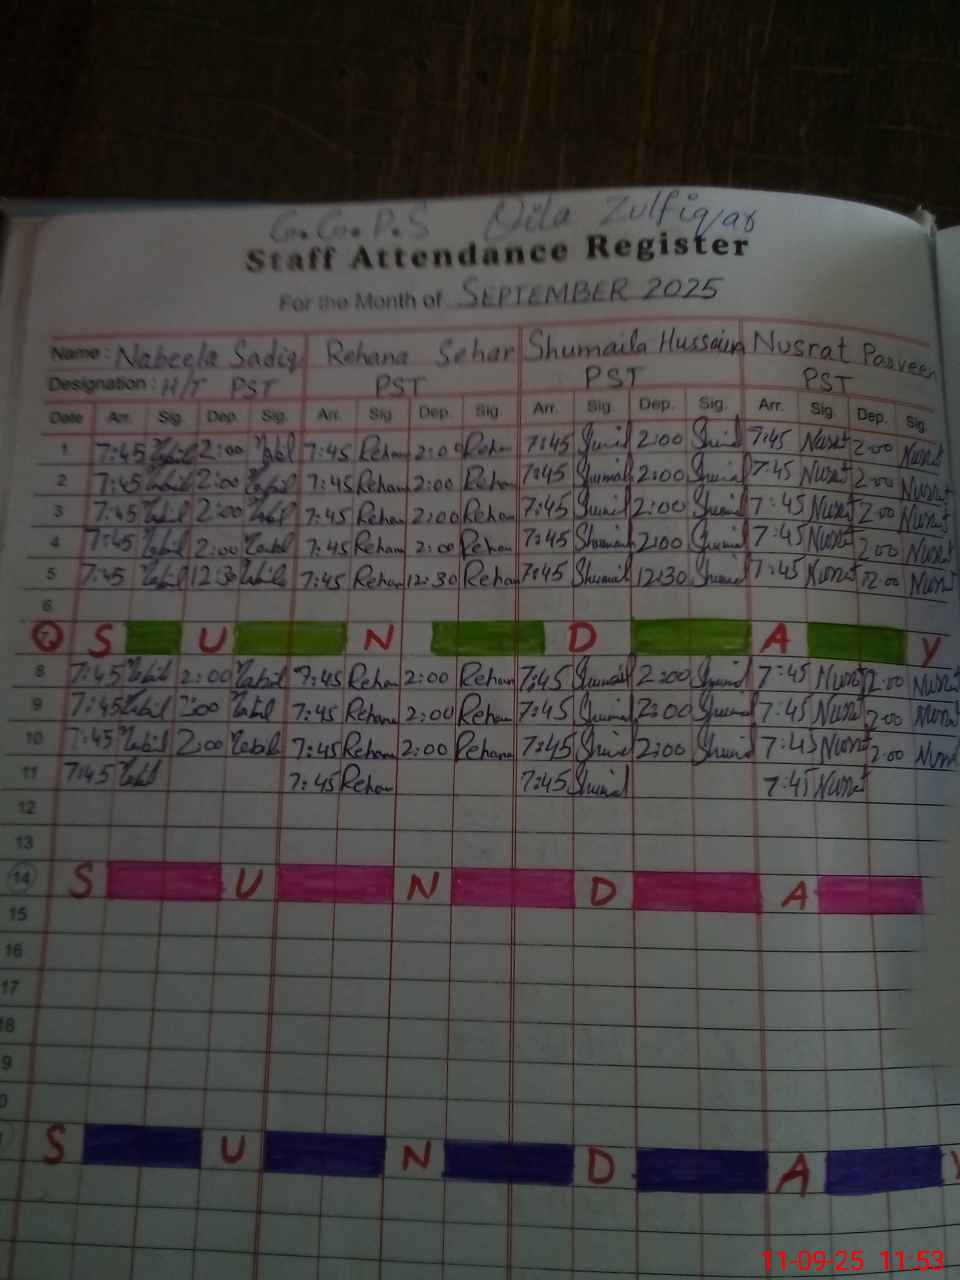 G.G.P.S Qila Zulfiqar
Staff Attendance Register
For the Month of SEPTEMBER 2025
Name : Nabeela Sadiq Rehana Sehar Shumaila Hussain Nusrat Parveen
Designation : H/T PST PST PST PST
Date Arr. Sig. Dep. Sig. Arr. Sig Dep. Sig. Arr. Sig. Dep. Sig. Arr. Sig. Dep. Sig
1 7:45 2:00 7:45 Rehan 2:00 Rehan 7:45 2:00 7:45 Nusrat 2:00 Nusrat
2 7:45 2:00 7:45 Rehan 2:00 Rehan 7:45 2:00 7:45 Nusrat 2:00 Nusrat
3 7:45 2:00 7:45 Rehan 2:00 Rehan 7:45 2:00 7:45 Nusrat 2:00 Nusrat
4 7:45 2:00 7:45 Rehan 2:00 Rehan 7:45 2:00 7:45 Nusrat 2:00 Nusrat
5 7:45 12:30 7:45 Rehan 12:30 Rehan 7:45 12:30 7:45 Nusrat 12:00 Nusrat
6
7 S U N D A Y
8 7:45 2:00 7:45 Rehan 2:00 Rehan 7:45 2:00 7:45 Nusrat 2:00 Nusrat
9 7:45 2:00 7:45 Rehana 2:00 Rehan 7:45 2:00 7:45 Nusrat 2:00 Nusrat
10 7:45 2:00 7:45 Rehana 2:00 Rehana 7:45 2:00 7:45 Nusrat 2:00 Nusrat
11 7:45 7:45 Rehan 7:45 7:45 Nusrat
12
13
14 S U N D A
15
16
17
18
9
0
S U N D A Y
11-09-25 11:53